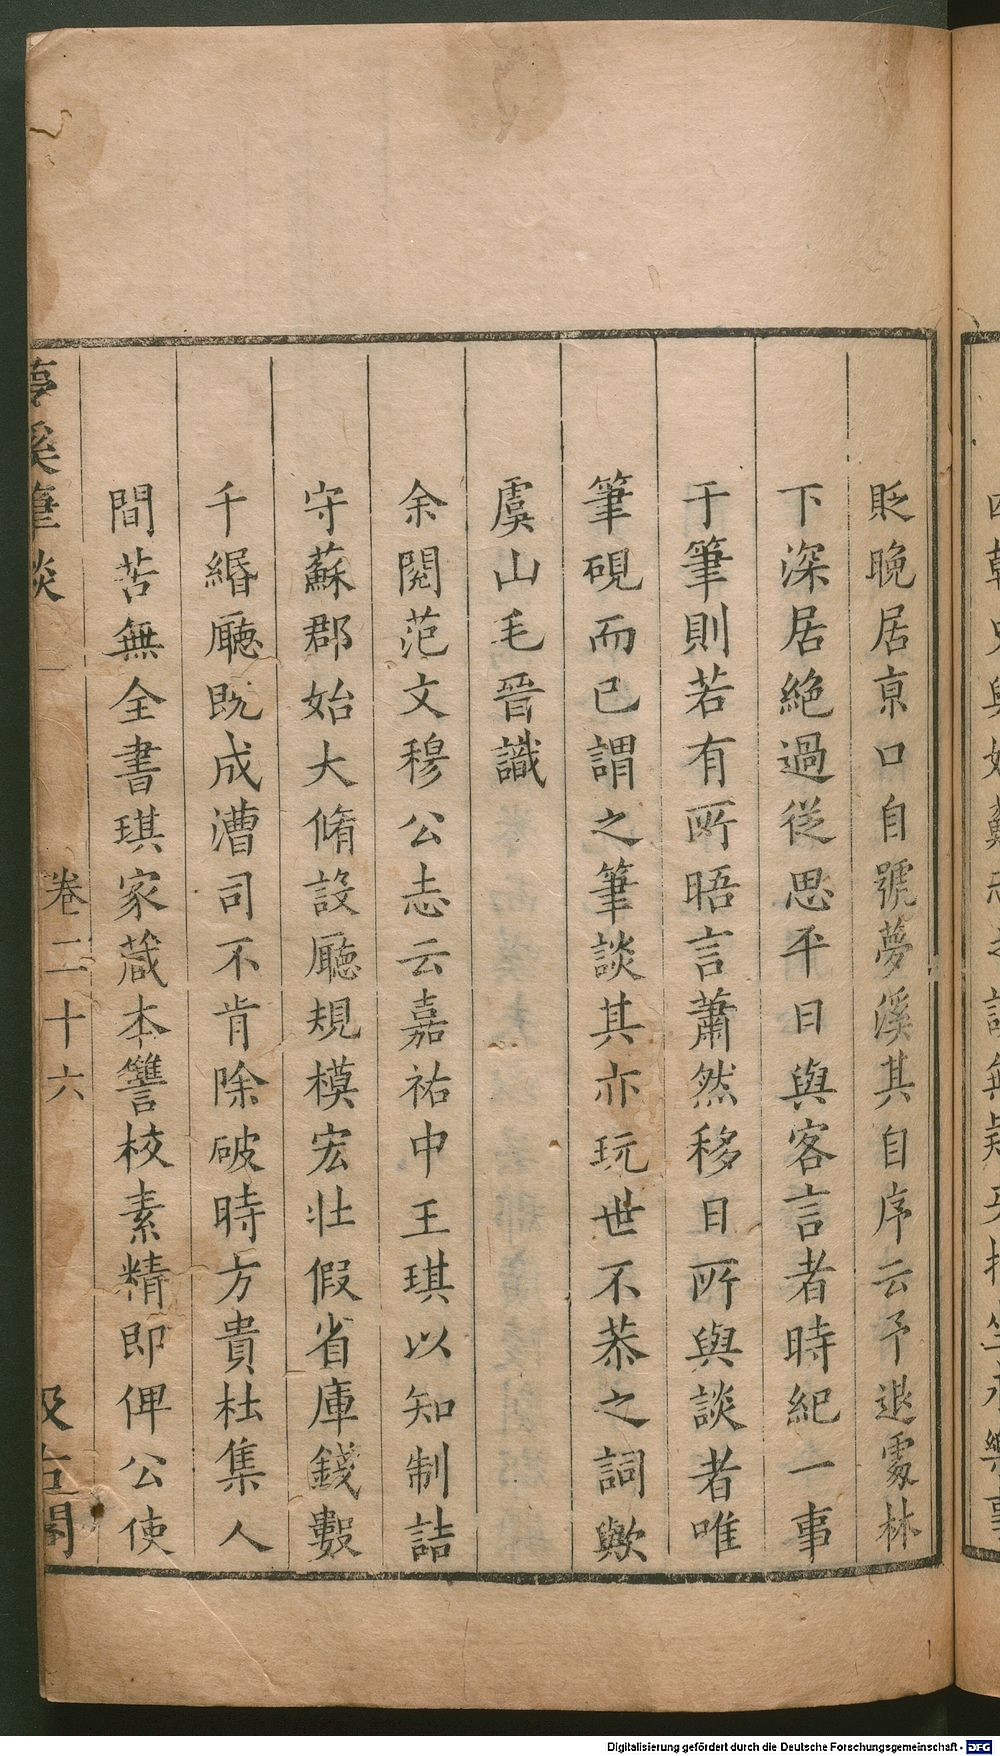 貶晚居京口自號夢溪其自序云予退處林
下深居絕過從思平日與客言者時紀一事
于筆則若有所晤言蕭然移日所與談者唯
筆硯而已謂之筆談其亦玩世不恭之詞歟
虞山毛晉識
余閱范文穆公志云嘉祐中王琪以知制誥
守蘇郡始大脩設廳規模宏壯假省庫錢數
千緡廳既成漕司不肯除破時方貴杜集人
間苦無全書琪家藏本讐校素精即俾公使
夢溪筆談 卷二十六 汲古閣
Digitalisierung gefördert durch die Deutsche Forschungsgemeinschaft - DFG